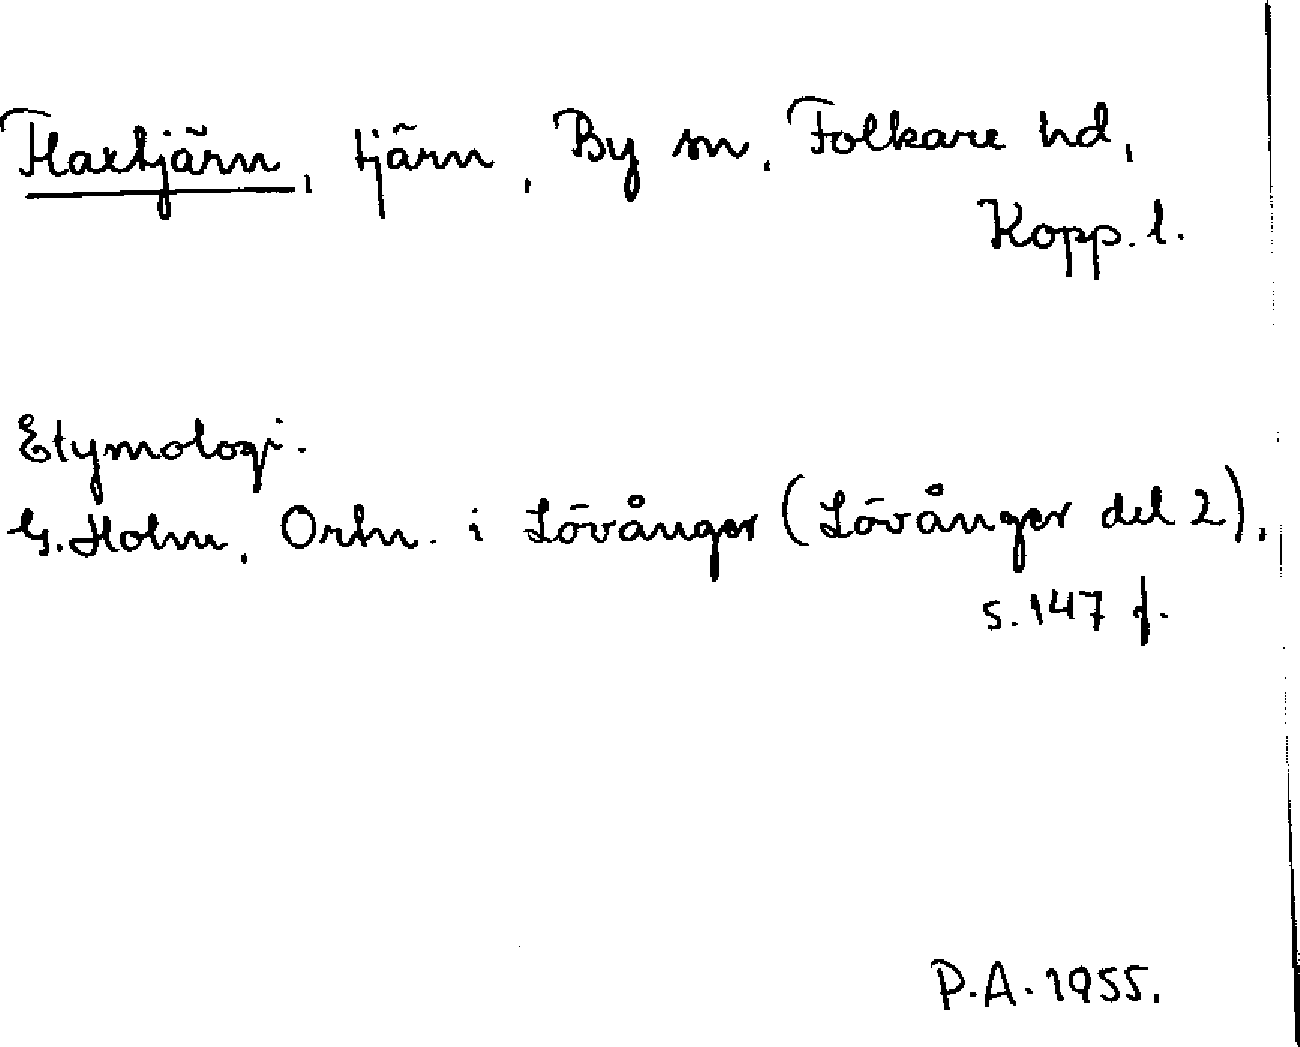 Flaxtjärn, tjärn, By sn, Folkare hd,
Kopp. l.
Etymologi.
G. Holm, Ortn. i Lövånger (Lövånger del 2),
s. 147 f.
P.A. 1955.